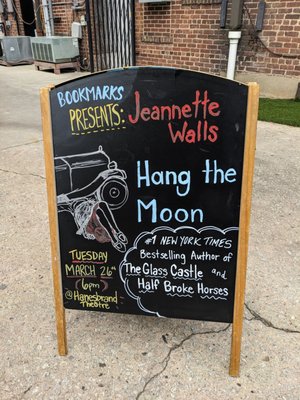 BOOKMARKS
PRESENTS:
Jeannette
Walls
Hang the
Moon
#1 NEW YORK TIMES
Bestselling Author of
The Glass Castle and
Half Broke Horses
TUESDAY
MARCH 26th
6pm
@Hanesbrand
Theatre